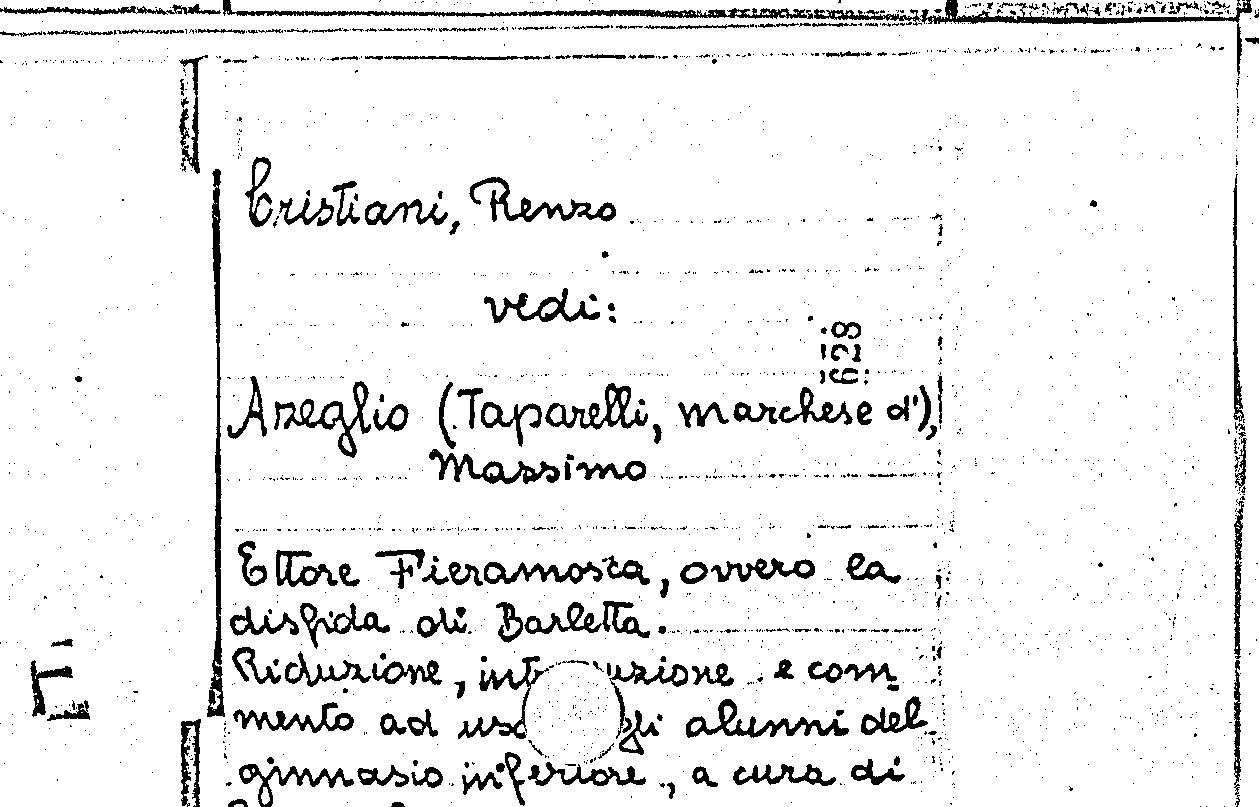 Cristiani, Renzo
vedi:
628
Azeglio (Taparelli, marchese d'),
Massimo
Ettore Fieramosca, ovvero la
disfida di Barletta.
Riduzione, int uzione e com-
mento ad uso gli alunni del
ginnasio inferiore, a cura di